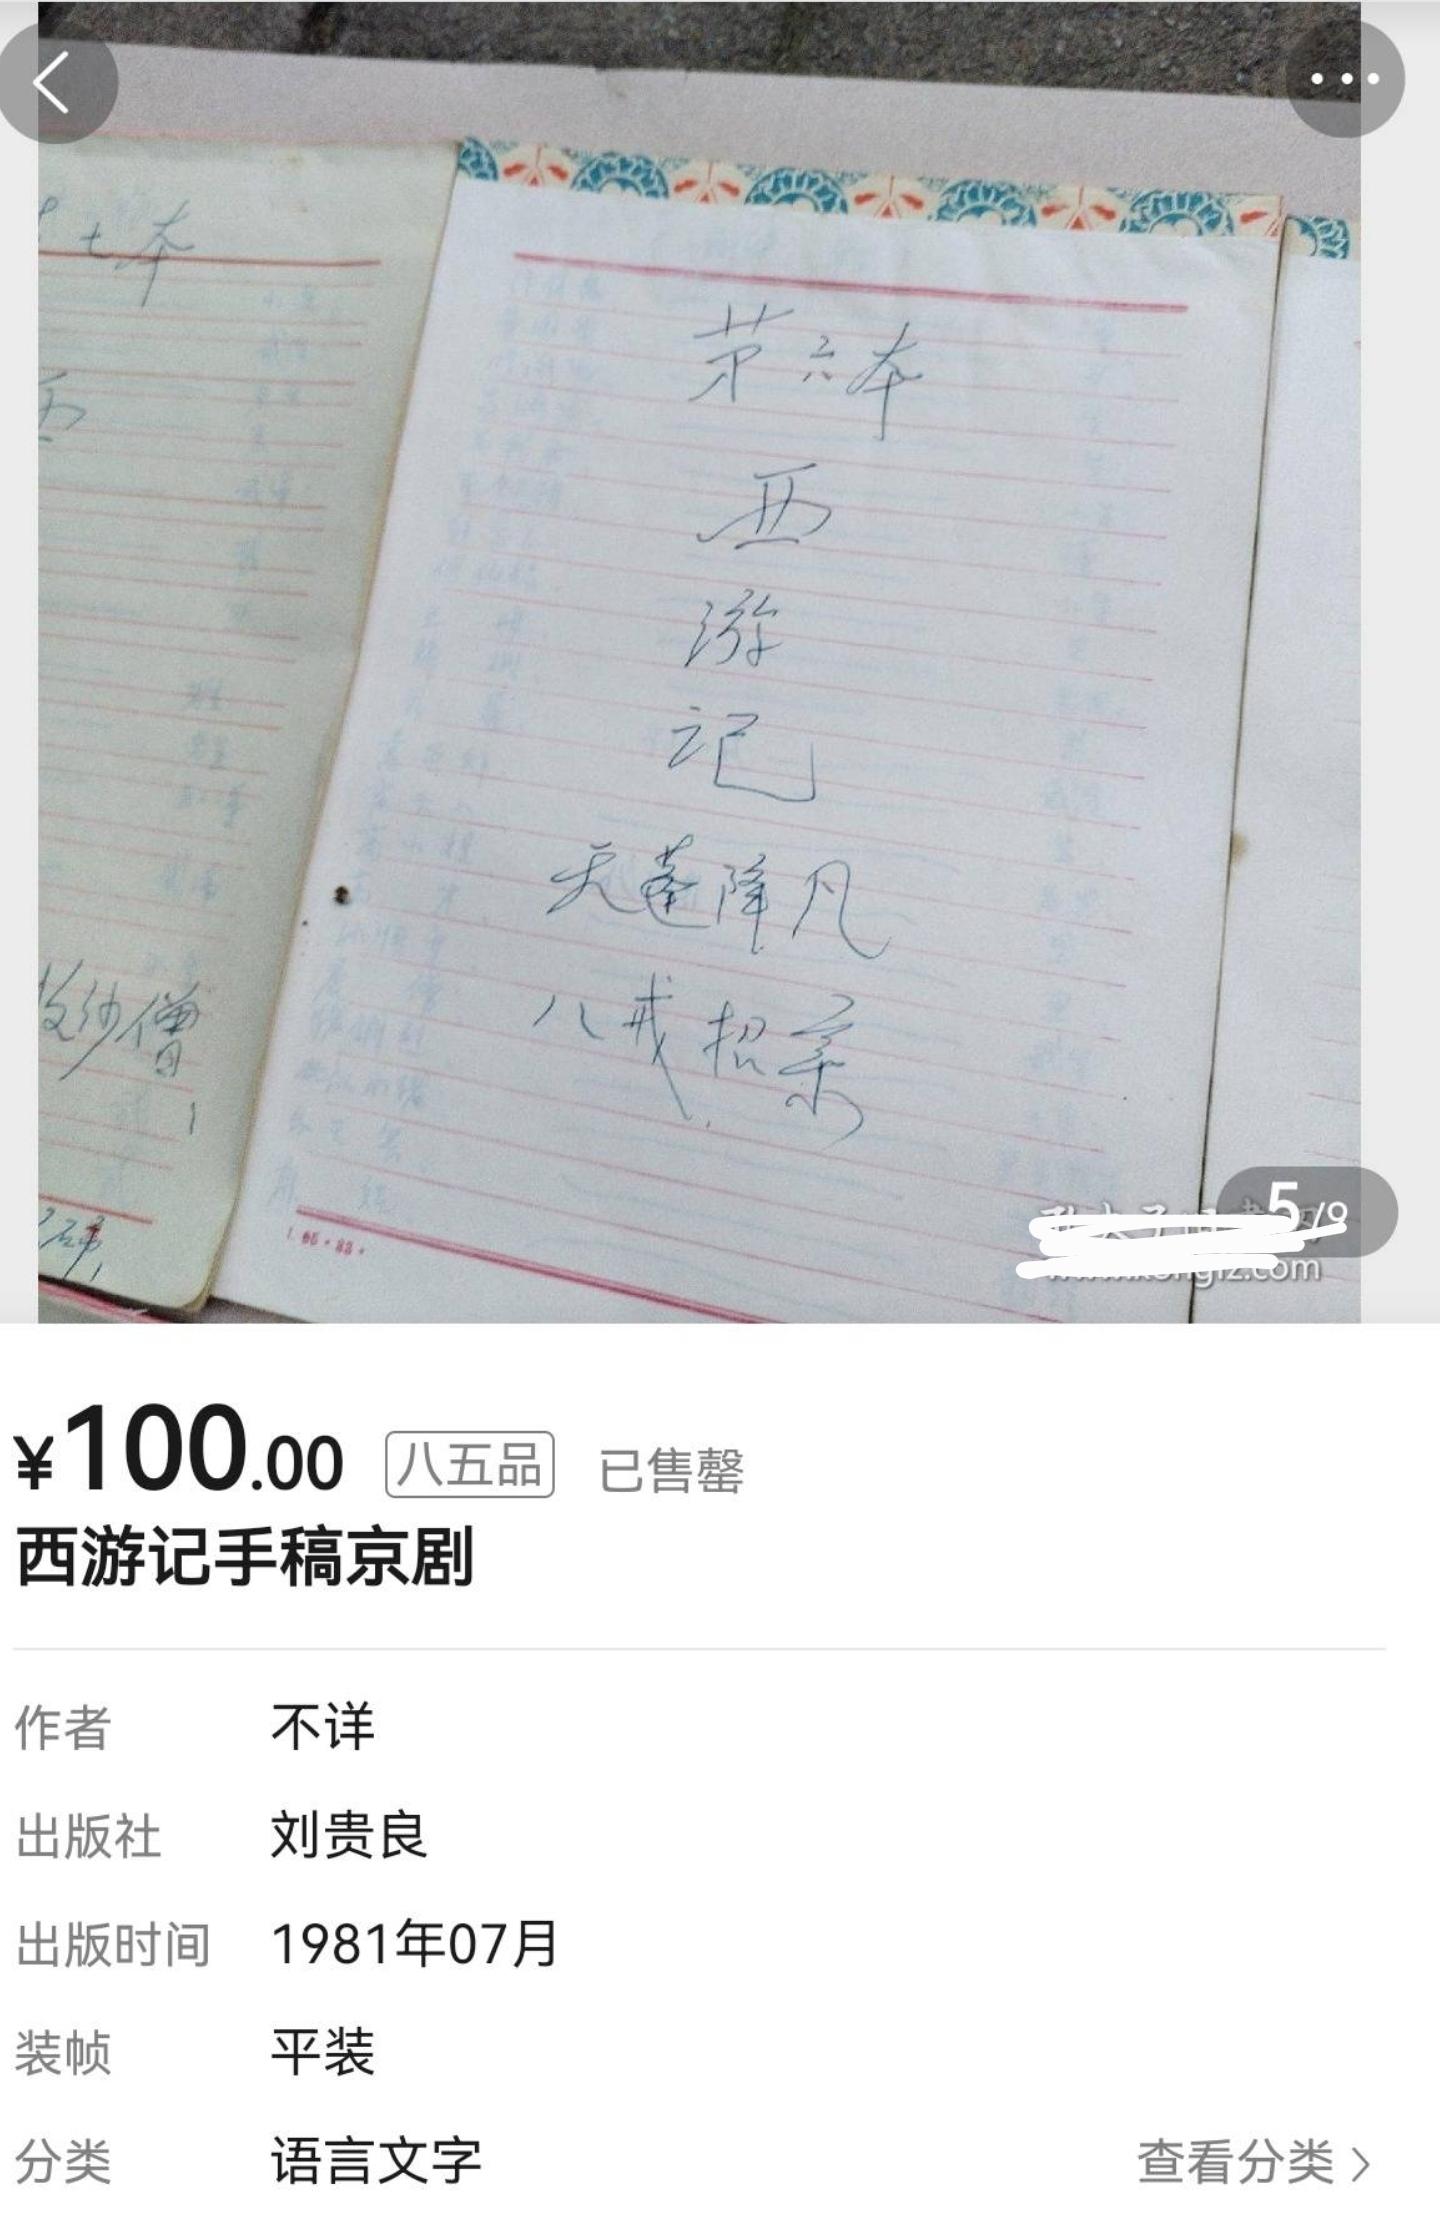 七本
西
收沙僧
第六本
西
游
记
天蓬降凡
八戒招亲
1.65·83·
5/9
¥100.00 八五品 已售罄
西游记手稿京剧
作者 不详
出版社 刘贵良
出版时间 1981年07月
装帧 平装
分类 语言文字 查看分类